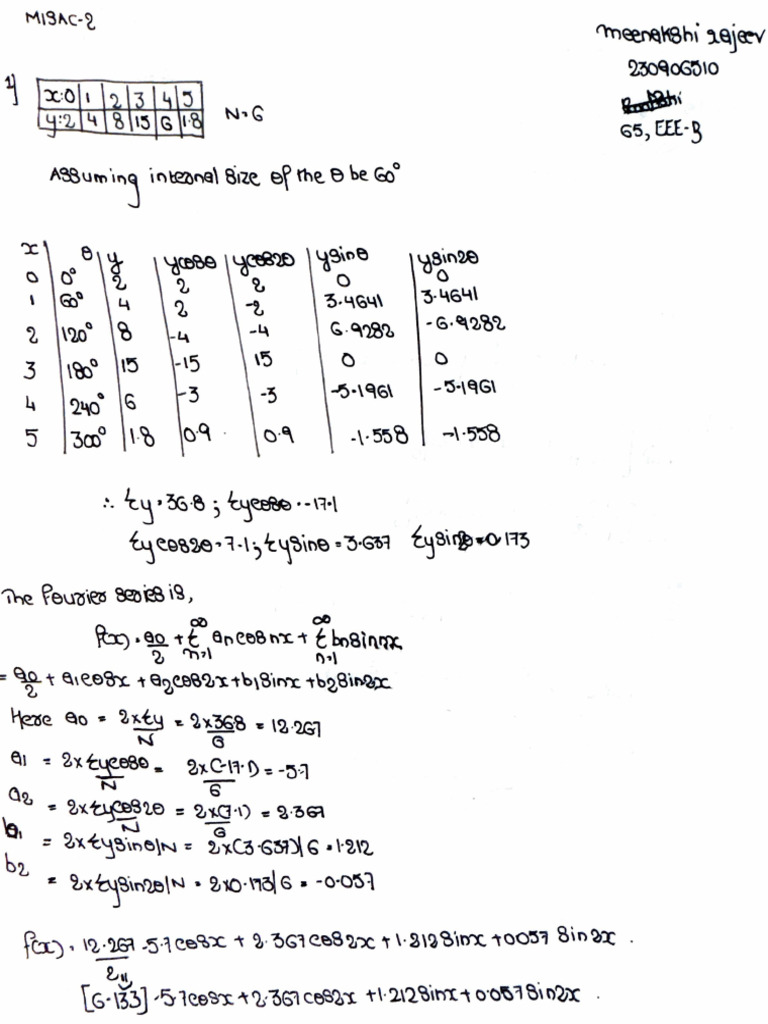 MISAC-2
Meenakshi Rajeev
230906510
65, EEE-B
1)
x:0 1 2 3 4 5
y:2 4 8 15 6 1.8
N=6
Assuming interval size of the θ be 60°
x θ y ycosθ ycos2θ ysinθ ysin2θ
0 0° 2 2 2 0 0
1 60° 4 2 -2 3.4641 3.4641
2 120° 8 -4 -4 6.9282 -6.9282
3 180° 15 -15 15 0 0
4 240° 6 -3 -3 -5.1961 -5.1961
5 300° 1.8 0.9 0.9 -1.558 -1.558
∴ Σy=36.8; Σycosθ=-17.1
Σycos2θ=7.1; Σysinθ=3.637 Σysin2θ=0.173
The Fourier series is,
f(x)=a0/2 + Σ(n=1 to ∞) ancosnx + Σ(n=1 to ∞) bnsinnx
= a0/2 + a1cosx + a2cos2x + b1sinx + b2sin2x
Here a0 = 2xΣy/N = 2x368/6 = 12.267
a1 = 2xΣycosθ/N = 2x(-17.1)/6 = -5.7
a2 = 2xΣycos2θ/N = 2x(7.1)/6 = 2.367
b1 = 2xΣysinθ/N = 2x(3.637)/6 = 1.212
b2 = 2xΣysin2θ/N = 2x0.173/6 = -0.057
f(x)= 12.267/2 -5.7cosx + 2.367cos2x + 1.212sinx + 0057 sin2x.
[6.133] -5.7cosx + 2.367cos2x + 1.212sinx + 0.057sin2x.